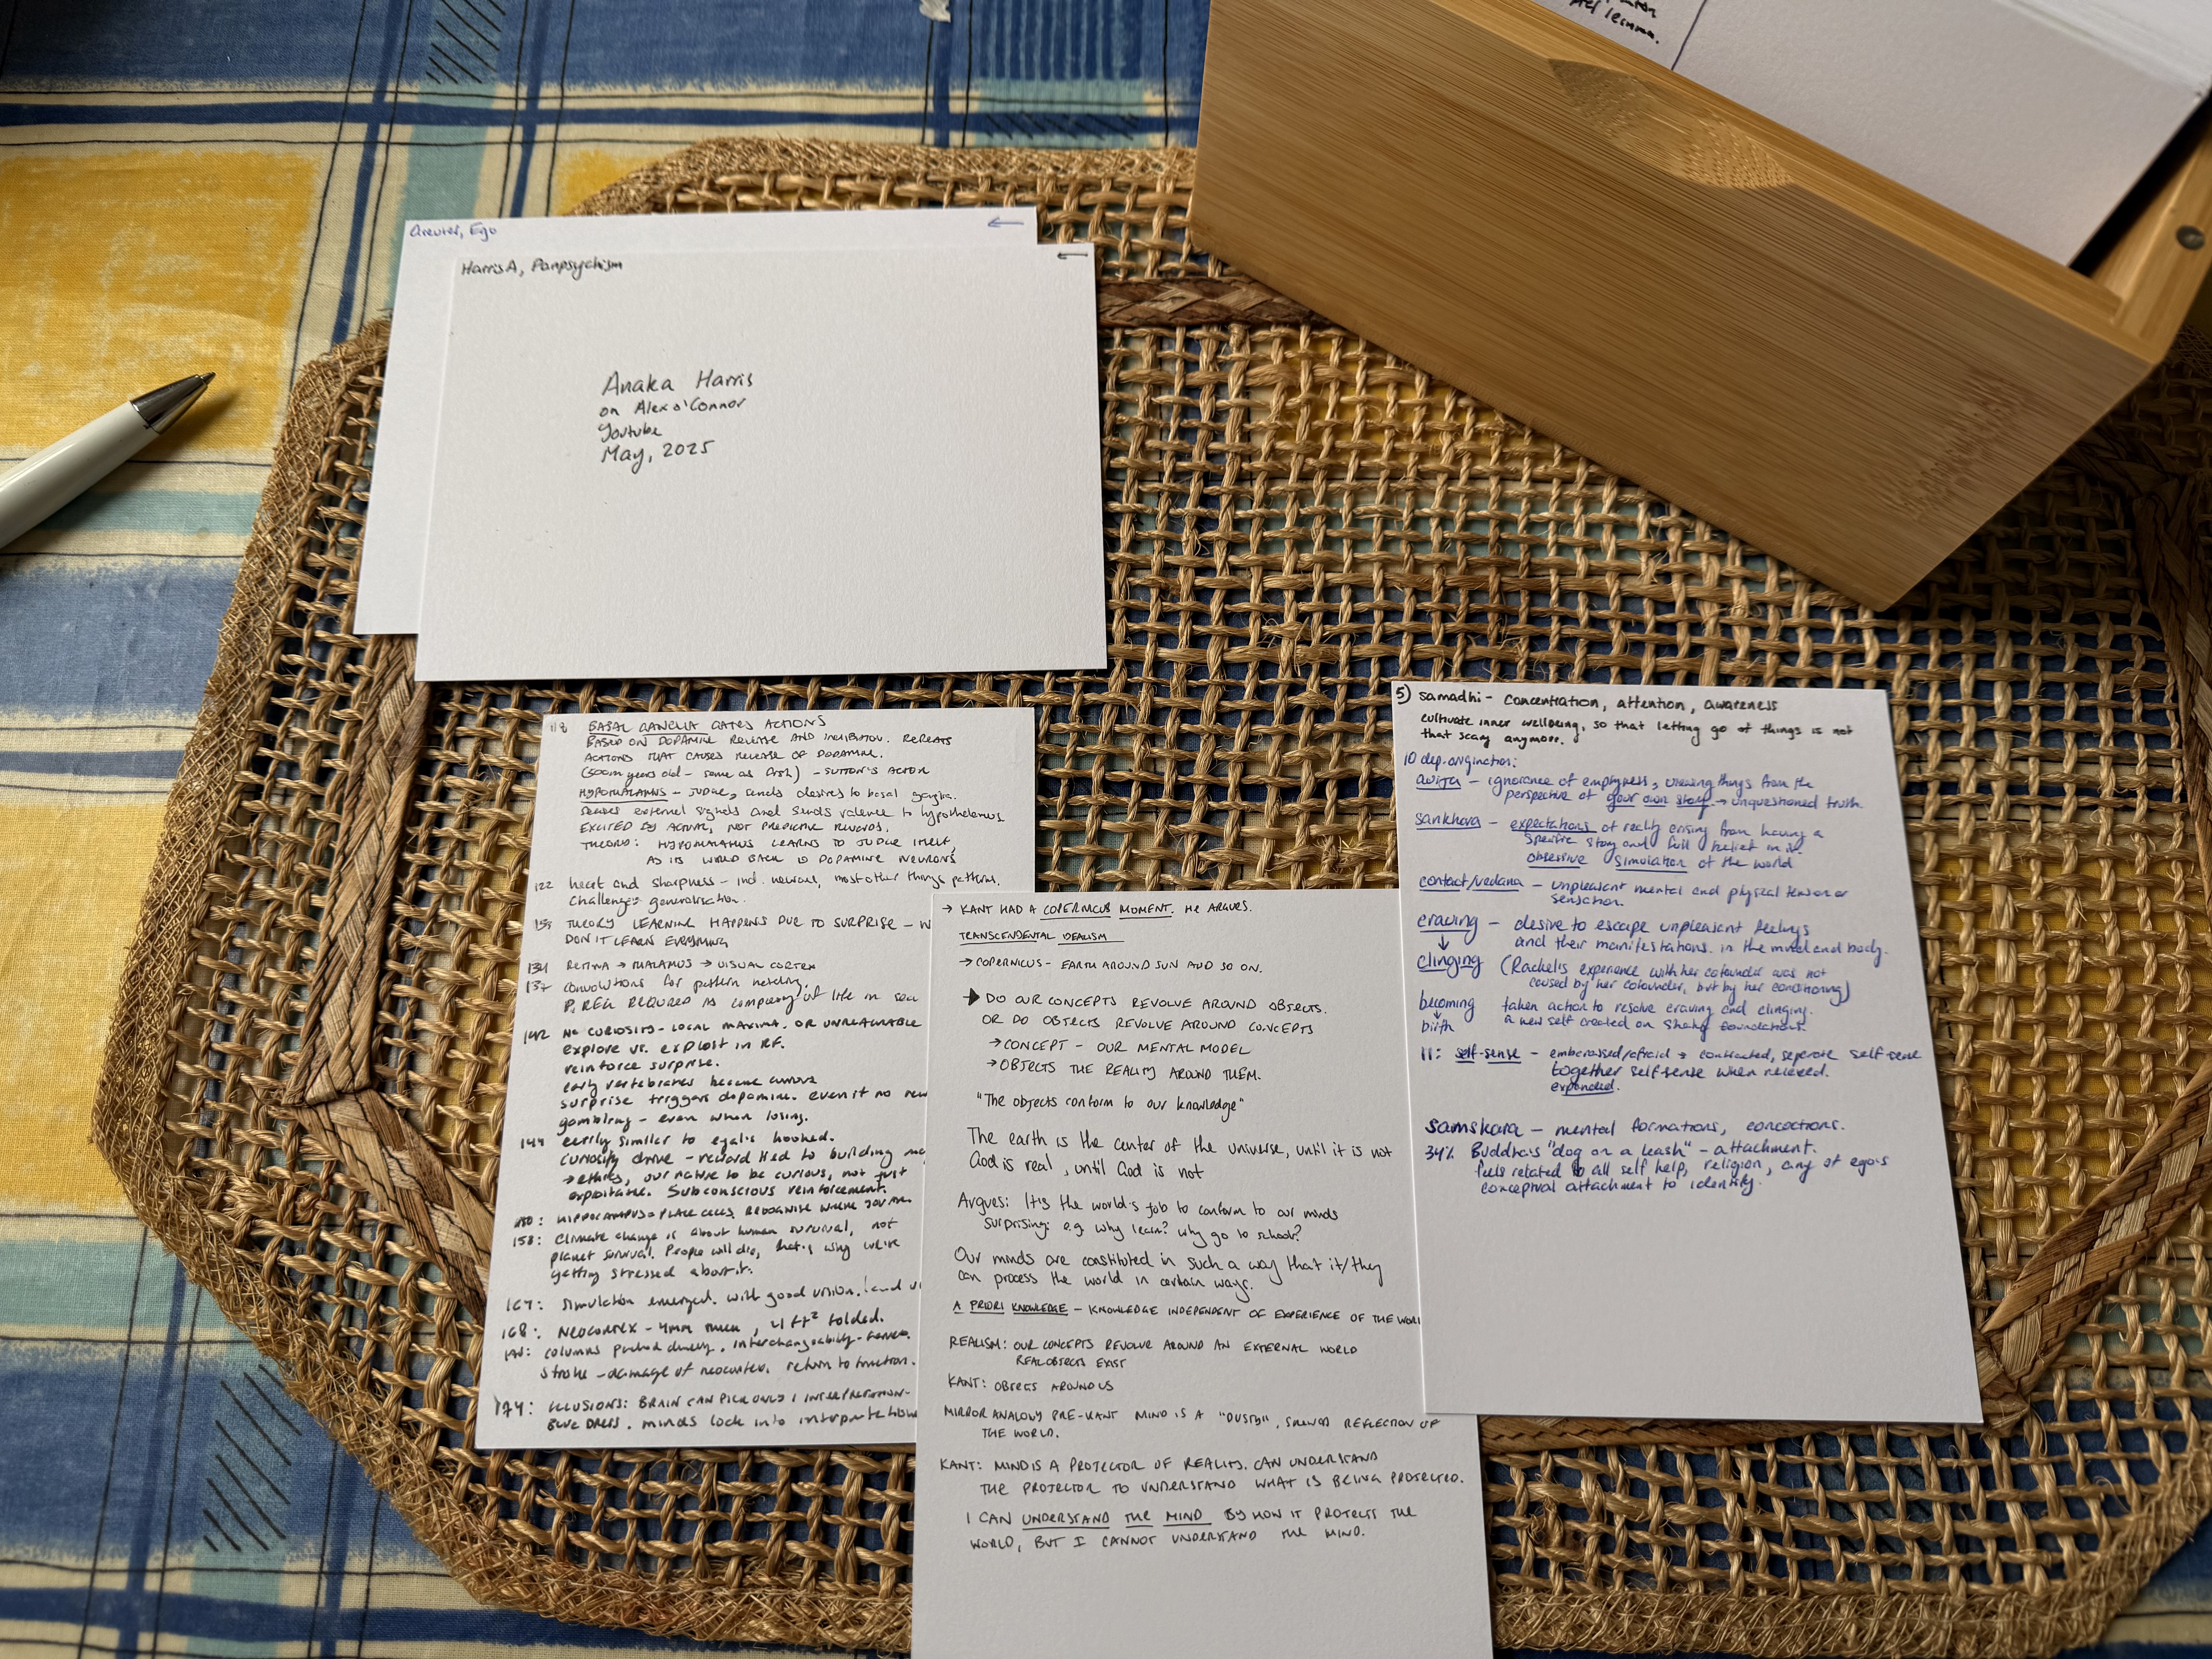 Ego
←
Harris A, Panpsychism
←
Anaka Harris
on Alex o'Connor
Youtube
May, 2025
118 BASAL GANGLIA GATES ACTIONS
BASED ON DOPAMINE RELEASE AND INHIBITION. REPEATS
ACTIONS THAT CAUSES RELEASE OF DOPAMINE.
(500m years old - same as fish) - SUTTON'S ACTOR
HYPOTHALAMUS - JUDGE, sends desires to basal ganglia.
senses external signals and sends valence to hypothalamus
EXCITED BY ACTUAL, NOT PREDICTIVE REWARDS.
THEORY: HYPOTHALAMUS LEARNS TO JUDGE ITSELF,
AS ITS WORLD BACK TO DOPAMINE NEURONS
122 heat and sharpness - ind. neurons, most other things patterns.
Challenge: generalisation.
THEORY LEARNING HAPPENS DUE TO SURPRISE - W
DON'T LEARN EVERYTHING
134 RETINA → THALAMUS → VISUAL CORTEX
137 convolutions for pattern matching.
P. REC REQUIRED AS complexity of life in sea
142 NO CURIOSITY - LOCAL MAXIMA. OR UNREACHABLE
explore vs. exploit in RF.
reinforce surprise.
early vertebrates became curious
surprise triggers dopamine. even if no rew
gambling - even when losing.
144 eerily similar to eyal's hooked.
curiosity drive - reward tied to building ma
→ ethics, our nature to be curious, not just
exploitative. Subconscious reinforcement.
150: HIPPOCAMPUS = PLACE CELLS, RECOGNISE WHERE YOU ARE.
158: Climate change is about human survival, not
planet survival. People will die, that's why we're
getting stressed about it.
167: simulation emerged. with good vision. land
168: NEOCORTEX - 4mm thick, 4 ft² folded.
columns packed densely, interchangeability
Stroke - damage of neocortex. return to function.
174: ILLUSIONS: BRAIN CAN PICK ONLY 1 INTERPRETATION -
BLUE DRESS. minds lock into interpretation
→ KANT HAD A COPERNICUS MOMENT. HE ARGUES.
TRANSCENDENTAL IDEALISM
→ COPERNICUS - EARTH AROUND SUN AND SO ON.
→ DO OUR CONCEPTS REVOLVE AROUND OBJECTS.
OR DO OBJECTS REVOLVE AROUND CONCEPTS
→ CONCEPT - OUR MENTAL MODEL
→ OBJECTS THE REALITY AROUND THEM.
"The objects conform to our knowledge"
The earth is the center of the universe, until it is not
God is real, until God is not
Argues: It's the world's job to conform to our minds
surprising: e.g. why learn? why go to school?
Our minds are constituted in such a way that it/they
can process the world in certain ways.
A PRIORI KNOWLEDGE - KNOWLEDGE INDEPENDENT OF EXPERIENCE OF THE WORL
REALISM: OUR CONCEPTS REVOLVE AROUND AN EXTERNAL WORLD
REAL OBJECTS EXIST
KANT: OBJECTS AROUND US
MIRROR ANALOGY PRE-KANT MIND IS A "DUSTY", SKEWED REFLECTION OF
THE WORLD.
KANT: MIND IS A PROJECTOR OF REALITY. CAN UNDERSTAND
THE PROJECTOR TO UNDERSTAND WHAT IS BEING PROJECTED.
I CAN UNDERSTAND THE MIND BY HOW IT PROJECTS THE
WORLD, BUT I CANNOT UNDERSTAND THE MIND.
5) samadhi - concentration, attention, awareness
cultivate inner wellbeing, so that letting go of things is not
that scary anymore.
10 dep. origination:
avijja - ignorance of emptyness, viewing things from the
perspective of your own story → unquestioned truth.
sankhara - expectations of reality arising from having a
specific story and full belief in it.
obsessive simulation of the world
contact/vedana - unpleasant mental and physical tension or
sensation.
craving - desire to escape unpleasant feelings
↓ and their manifestations in the mind and body.
clinging (Rachel's experience with her cofounder was not
caused by her cofounder, but by her conditioning)
becoming taken action to resolve craving and clinging.
↓
birth a new self created on shaky foundations.
11: self-sense - embarrassed/afraid → contracted, seperate self-sense
together self-sense when relaxed.
expanded.
samskara - mental formations, concoctions.
34% Buddha's "dog on a leash" - attachment.
feels related to all self help, religion, any of ego's
conceptual attachment to identity.